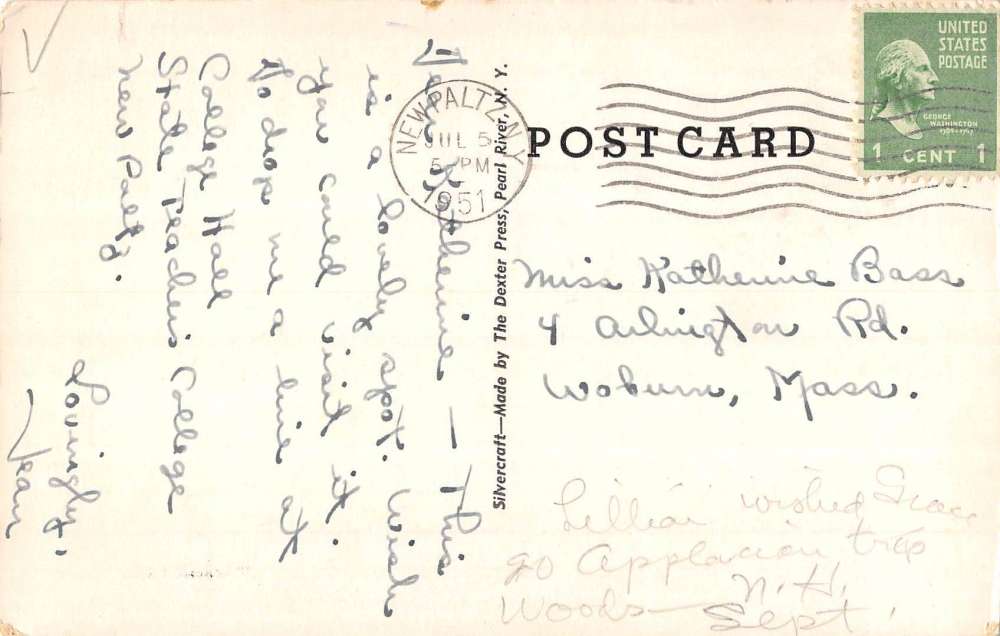 Dear Katherine — This
is a lovely spot. Wish
you could visit it.
Do drop me a line at
College Hall
State Teachers College
New Paltz.
Lovingly,
Jean
Silvercraft—Made by The Dexter Press, Pearl River, N. Y.
NEW PALTZ N.Y.
JUL 5
5 PM
1951
POST CARD
UNITED
STATES
POSTAGE
GEORGE
WASHINGTON
1 CENT 1
Miss Katherine Bass
4 Arlington Rd.
Woburn, Mass.
wished
go
N.H.
Woods Sept.